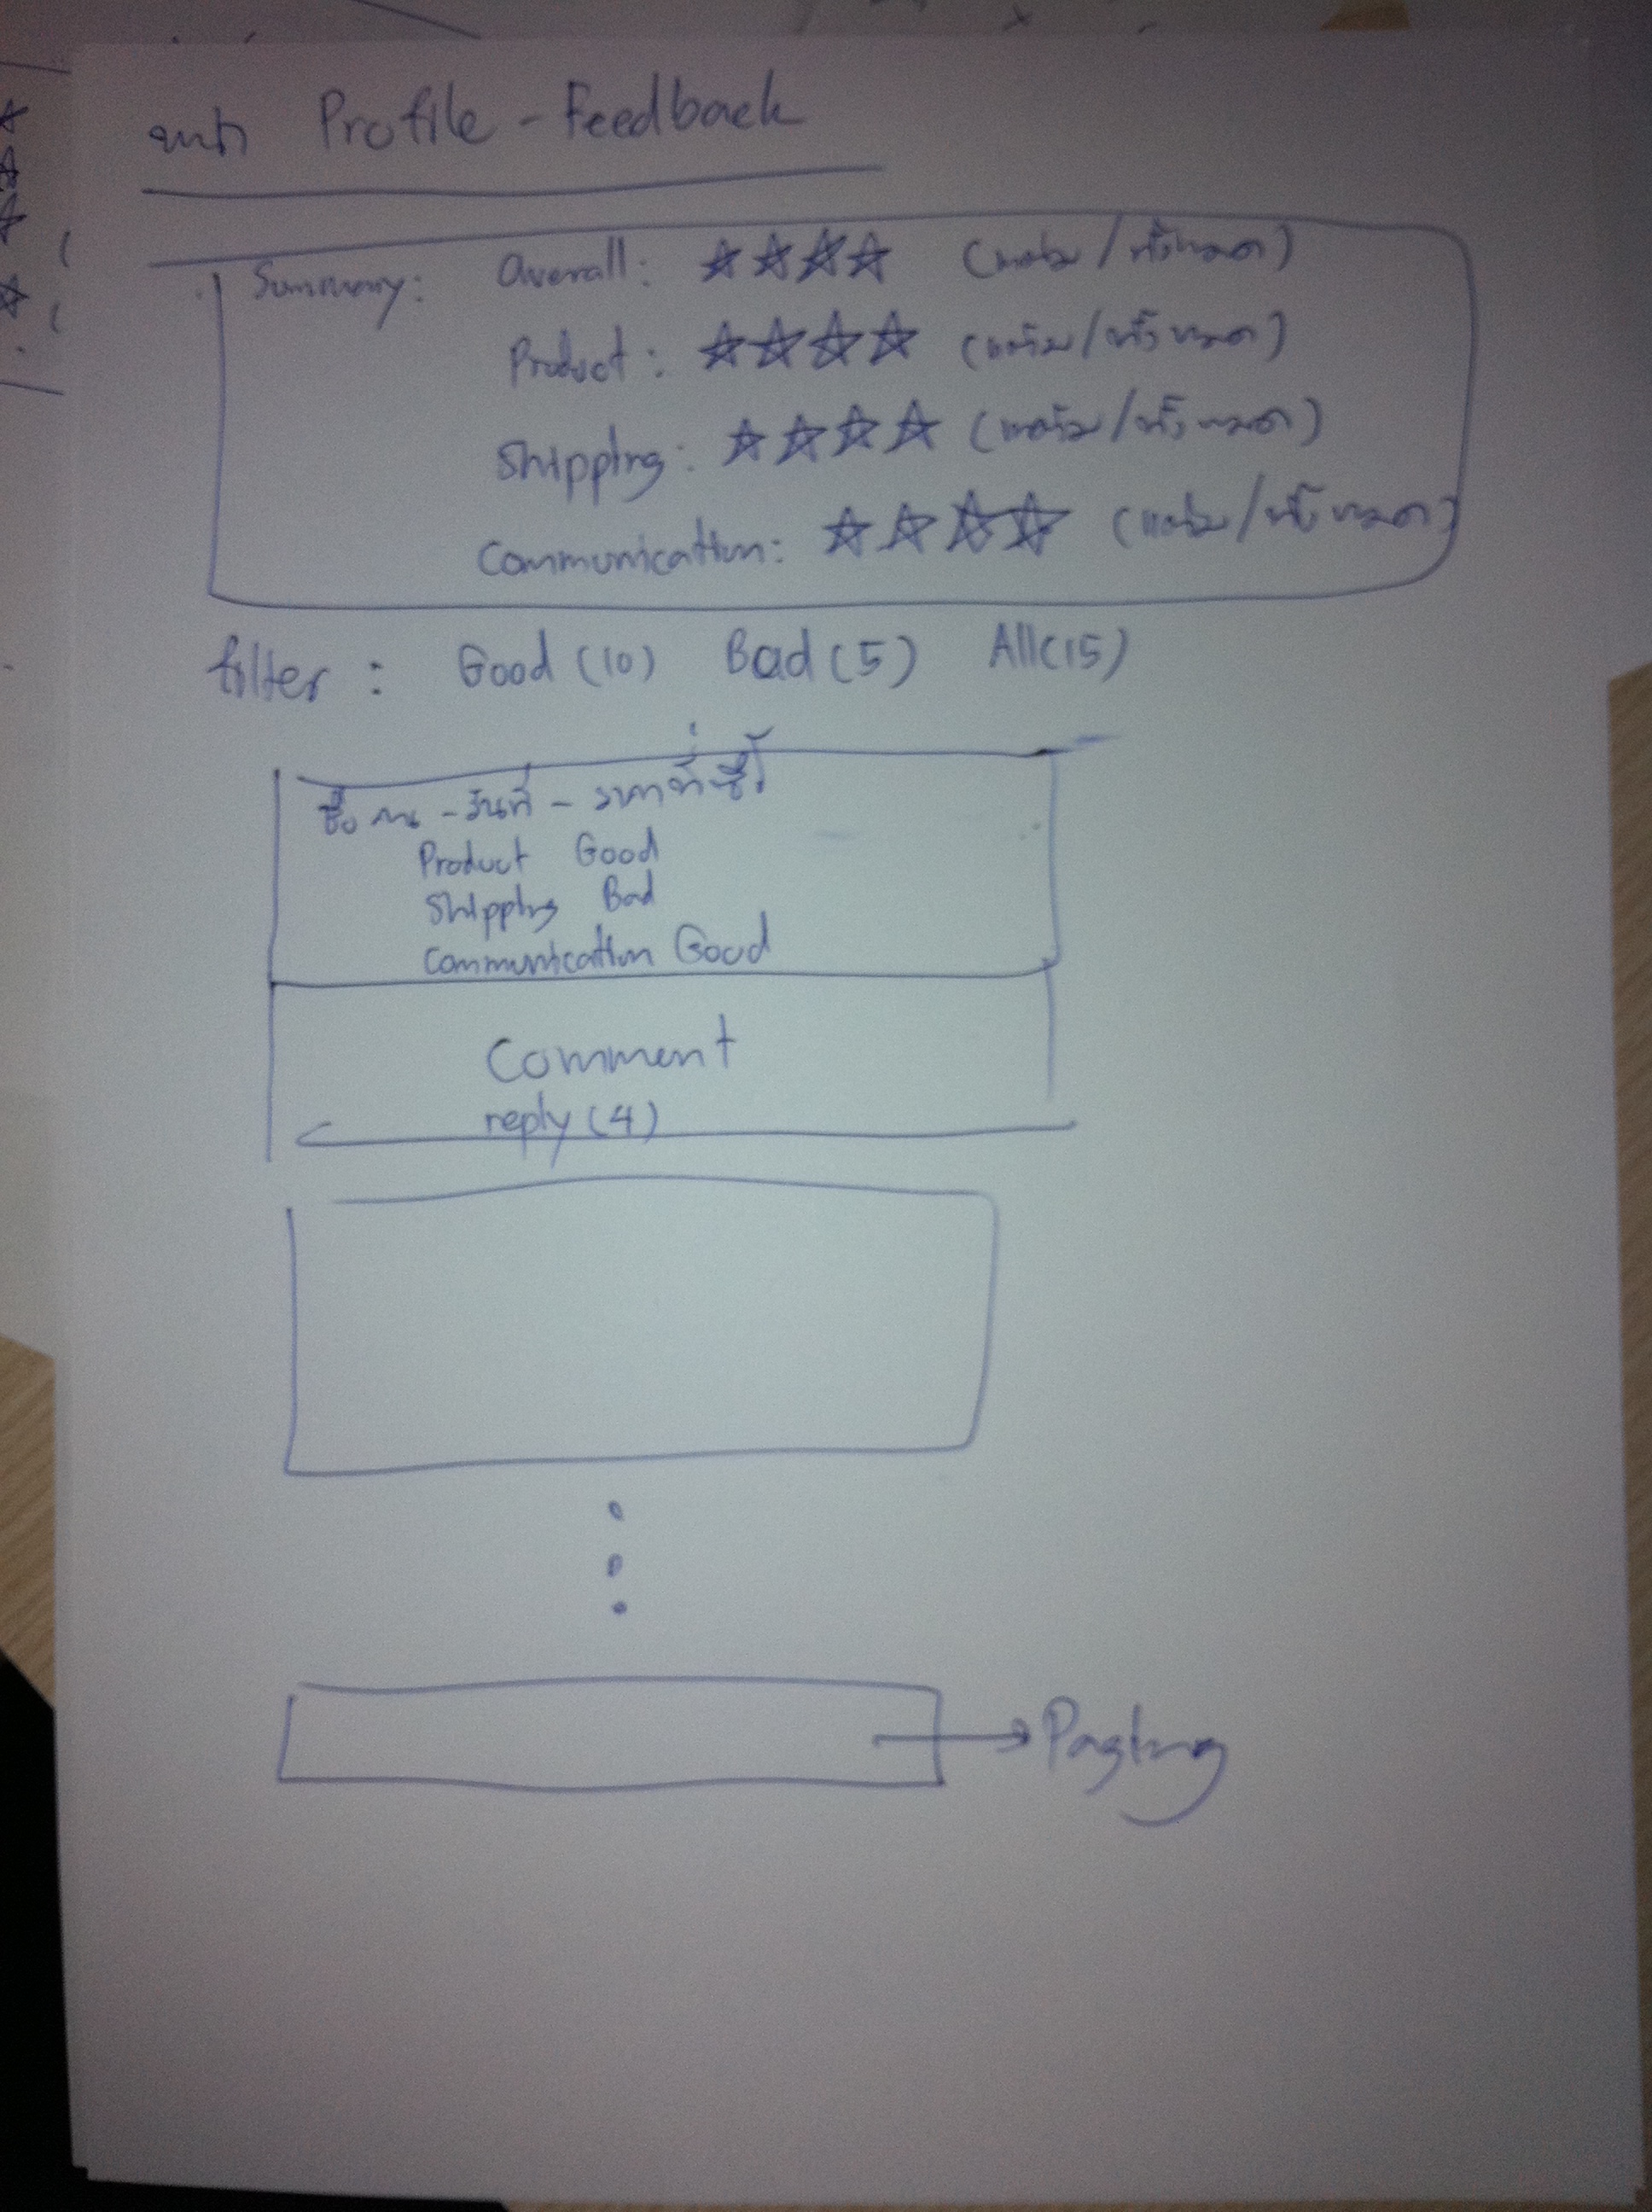 หน้า Profile - Feedback
Summary: Overall: ☆☆☆☆ (แต้ม/ทั้งหมด)
Product: ☆☆☆☆ (แต้ม/ทั้งหมด)
Shipping: ☆☆☆☆ (แต้ม/ทั้งหมด)
Communication: ☆☆☆☆ (แต้ม/ทั้งหมด)
filter : Good (10) Bad (5) All (15)
ชื่อคน - วันที่ - ราคาที่ซื้อ
Product Good
Shipping Bad
Communication Good
Comment
reply (4)
Paging